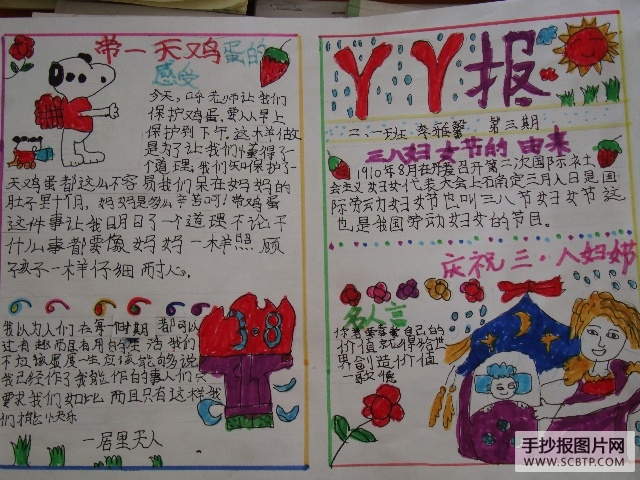 带一天鸡蛋的
感受
今天,呼老师让我们
保护鸡蛋,要从早上
保护到下午,这样做
是为了让我们懂得了一个
道理,我们只叫保护了一
天鸡蛋都这么不容易我们呆在妈妈的
肚子里十个月,妈妈是多么辛苦呵!带鸡蛋
这件事让我明日了一个道理不论干
什么事都要像妈妈一样照顾
孩子一样仔细而小心。
我以为人们在每一时期都可以
过有趣而且有用的生活我们
不应该虚度一生应该能够说
我已经作了我能作的事人们只
要求我们如此而且只有这样我
们才能小欢乐
一居里夫人
3 8
丫丫报
二·一班 李雅馨 第三期
三八妇女节的由来
1910年8月在丹麦召开第二次国际社
会主义妇女代表大会上石角定三月八日是国
际劳动妇妇女节也叫三八节妇女节这
也是我国劳动妇妇女的节目。
庆祝三·八妇女节
名人言
你若要喜爱自己的
价值就得给世
界创造价值
一歌德
手抄报图片网
WWW.SCBTP.COM